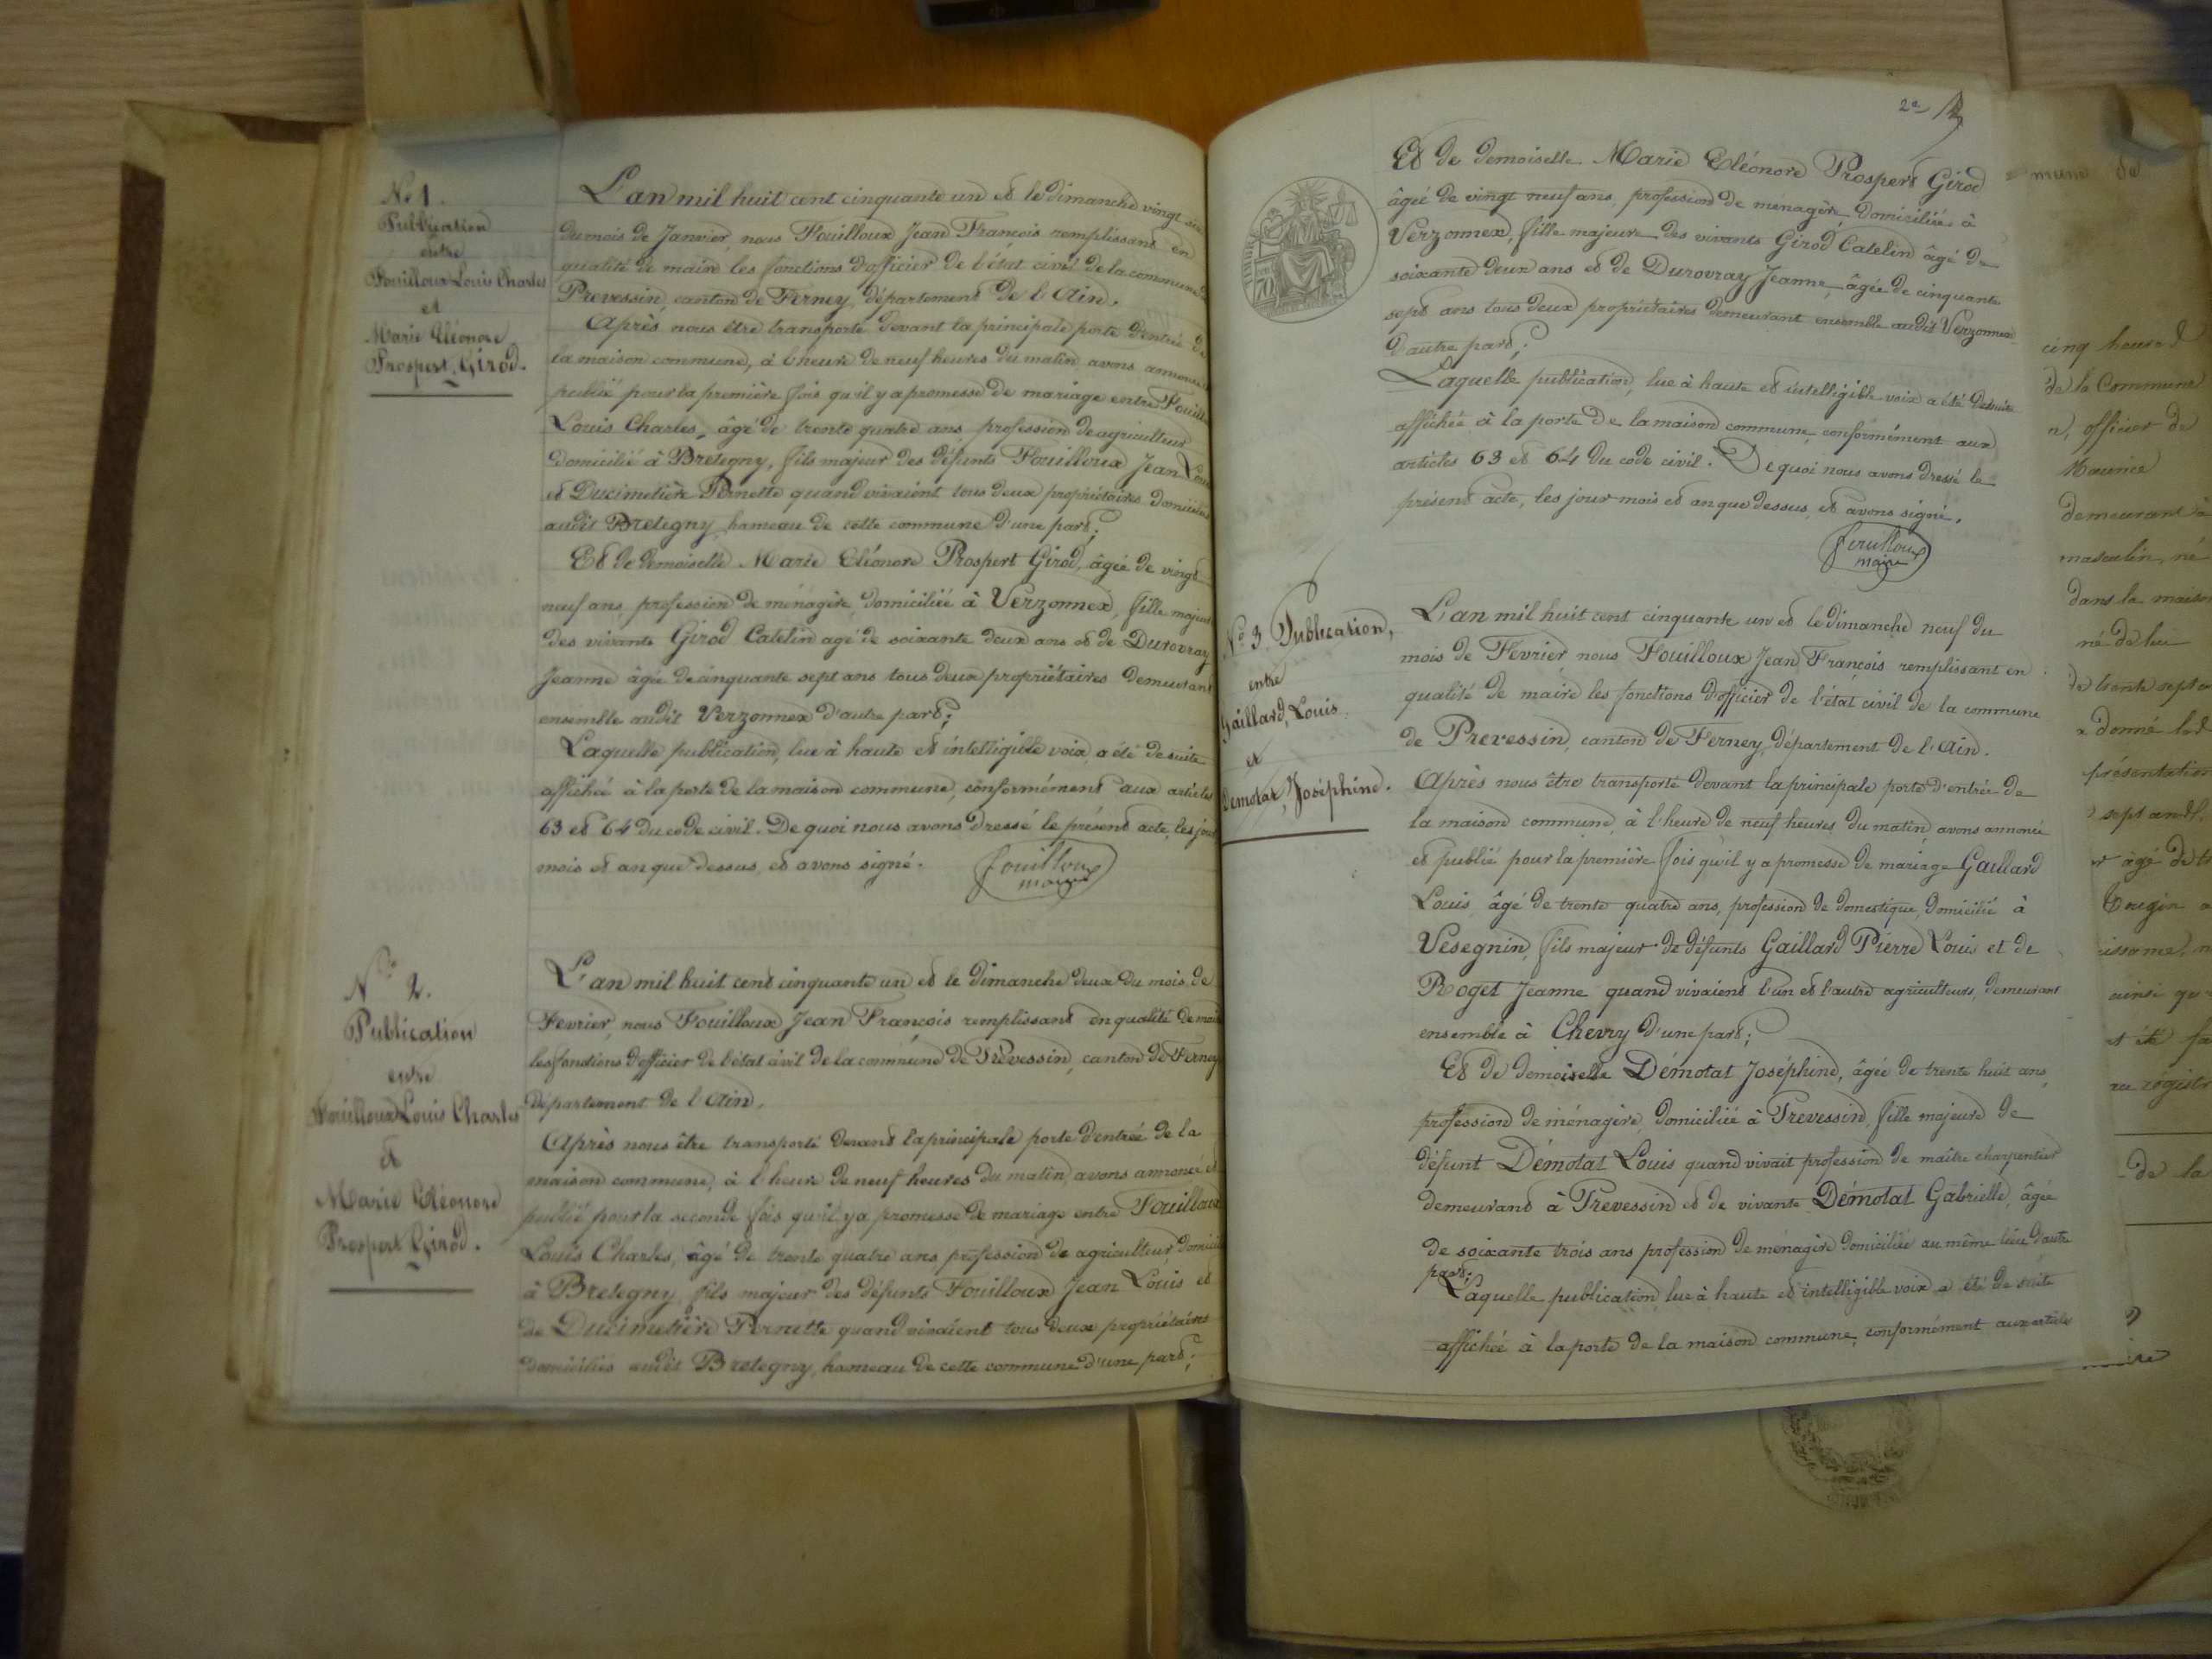 No 1.
Publication
entre
Fouilloux Louis Charles
et
Marie Eléonore
Prospert Girod.
L'an mil huit cent cinquante un et le dimanche vingt six
du mois de Janvier, nous Fouilloux Jean François remplissant en
qualité de maire les fonctions d'officier de l'état civil de la commune de
Prevessin, canton de Ferney, département de l'Ain.
Après nous être transporté devant la principale porte d'entrée de
la maison commune, à l'heure de neuf heures du matin avons annoncé
publié pour la première fois qu'il y a promesse de mariage entre Fouilloux
Louis Charles, âgé de trente quatre ans, profession de agriculteur
domicilié à Bretegny, fils majeur des défunts Fouilloux Jean Louis
et Ducimetière Pernette quand vivaient tous deux propriétaires domiciliés
audit Bretegny, hameau de cette commune d'une part;
Et de demoiselle Marie Eléonore Prospert Girod, âgée de vingt
neuf ans, profession de ménagère, domiciliée à Verzonnex, fille majeure
des vivants Girod Catelin agé de soixante deux ans et de Durovray
Jeanne âgée de cinquante sept ans tous deux propriétaires demeurant
ensemble audit Verzonnex d'autre part;
Laquelle publication, lue à haute et intelligible voix, a été de suite
affichée à la porte de la maison commune, conformément aux articles
63 et 64 du code civil. De quoi nous avons dressé le présent acte, les jour
mois et an que dessus, et avons signé.
Fouilloux
maire
No 2.
Publication
entre
Fouilloux Louis Charles
et
Marie Eléonore
Prospert Girod.
L'an mil huit cent cinquante un et le dimanche deux du mois de
Fevrier, nous Fouilloux Jean François remplissant en qualité de maire
les fonctions d'officier de l'état civil de la commune de Prévessin, canton de Ferney
département de l'Ain.
Après nous être transporté devant la principale porte d'entrée de la
maison commune, à l'heure de neuf heures du matin, avons annoncé et
publié pour la seconde fois qu'il y a promesse de mariage entre Fouilloux
Louis Charles, âgé de trente quatre ans profession de agriculteur, domicilié
à Bretegny, fils majeur des défunts Fouilloux Jean Louis et
de Ducimetière Pernette quand vivaient tous deux propriétaires
domiciliés audit Bretegny, hameau de cette commune d'une part;
2e
TIMBRE
70
Et de demoiselle Marie Eléonore Prospert Girod
âgée de vingt neuf ans, profession de ménagère, domiciliée à
Verzonnex, fille majeure des vivants Girod Catelin âgé de
soixante deux ans et de Durovray Jeanne, âgée de cinquante
sept ans tous deux propriétaires demeurant ensemble audit Verzonnex
d'autre part;
Laquelle publication, lue à haute et intelligible voix a été de suite
affichée à la porte de la maison commune, conformément aux
articles 63 et 64 du code civil. De quoi nous avons dressé le
présent acte, les jour mois et an que dessus, et avons signé,
Fouilloux
maire
No 3. Publication,
entre
Gaillard, Louis
et
Demotat, Joséphine.
L'an mil huit cent cinquante un et le dimanche neuf du
mois de Février nous Fouilloux Jean François remplissant en
qualité de maire les fonctions d'officier de l'état civil de la commune
de Prevessin, canton de Ferney, département de l'Ain.
Après nous être transporté devant la principale porte d'entrée de
la maison commune, à l'heure de neuf heures du matin avons annoncé
et publié pour la première fois qu'il y a promesse de mariage Gaillard
Louis, âgé de trente quatre ans, profession de domestique, domicilié à
Vesegnin, fils majeur de défunts Gaillard Pierre Louis et de
Roget Jeanne quand vivaient l'un et l'autre agriculteurs, demeurant
ensemble à Chevry d'une part;
Et de demoiselle Démotat Joséphine, âgée de trente huit ans,
profession de ménagère, domiciliée à Prevessin, fille majeure de
défunt Démotat Louis quand vivait profession de maître charpentier
demeurant à Prevessin et de vivante Démotat Gabrielle, âgée
de soixante trois ans profession de ménagère domiciliée au même lieu d'autre
part;
Laquelle publication, lue à haute et intelligible voix a été de suite
affichée à la porte de la maison commune, conformément aux articles
de
cinq heures
de la Commune
officier de
Maurice
demeurant à
masculin, né
dans la maison
né de lui
de trente sept
donné le
présentation
sept ans
âgé de
ainsi que
et été
au registre
de la